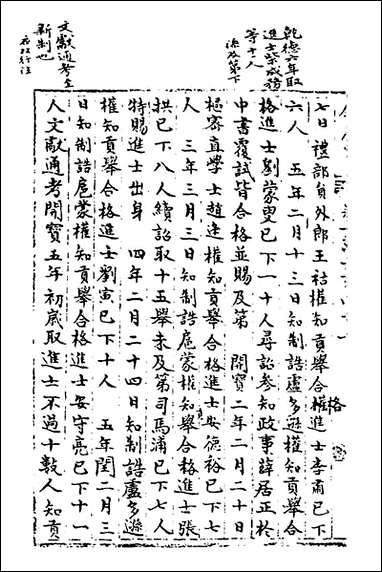 乾德六年取
進士柴成務
等十人
注及第下
文獻通考至
新制也
石政行注
七日禮部員外郎王祜權知貢舉合格進士李肅已下
六人　五年二月十三日知制誥盧多遜權知貢舉合
格進士劉蒙叟已下一十人尋詔參知政事薛居正於
中書覆試皆合格並賜及第　開寶二年二月二十日
樞密直學士趙逢權知貢舉合格進士安德裕已下七
人　三年三月三日知制誥扈蒙權知舉合格進士張
拱已下八人續詔取十五舉未及第司馬浦已下七人
特賜進士出身　四年二月二十四日知制誥盧多遜
權知貢舉合格進士劉寅已下十人　五年閏二月三
日知制誥扈蒙權知貢舉合格進士安守亮已下十一
人文獻通考開寶五年初歲取進士不過十數人知貢